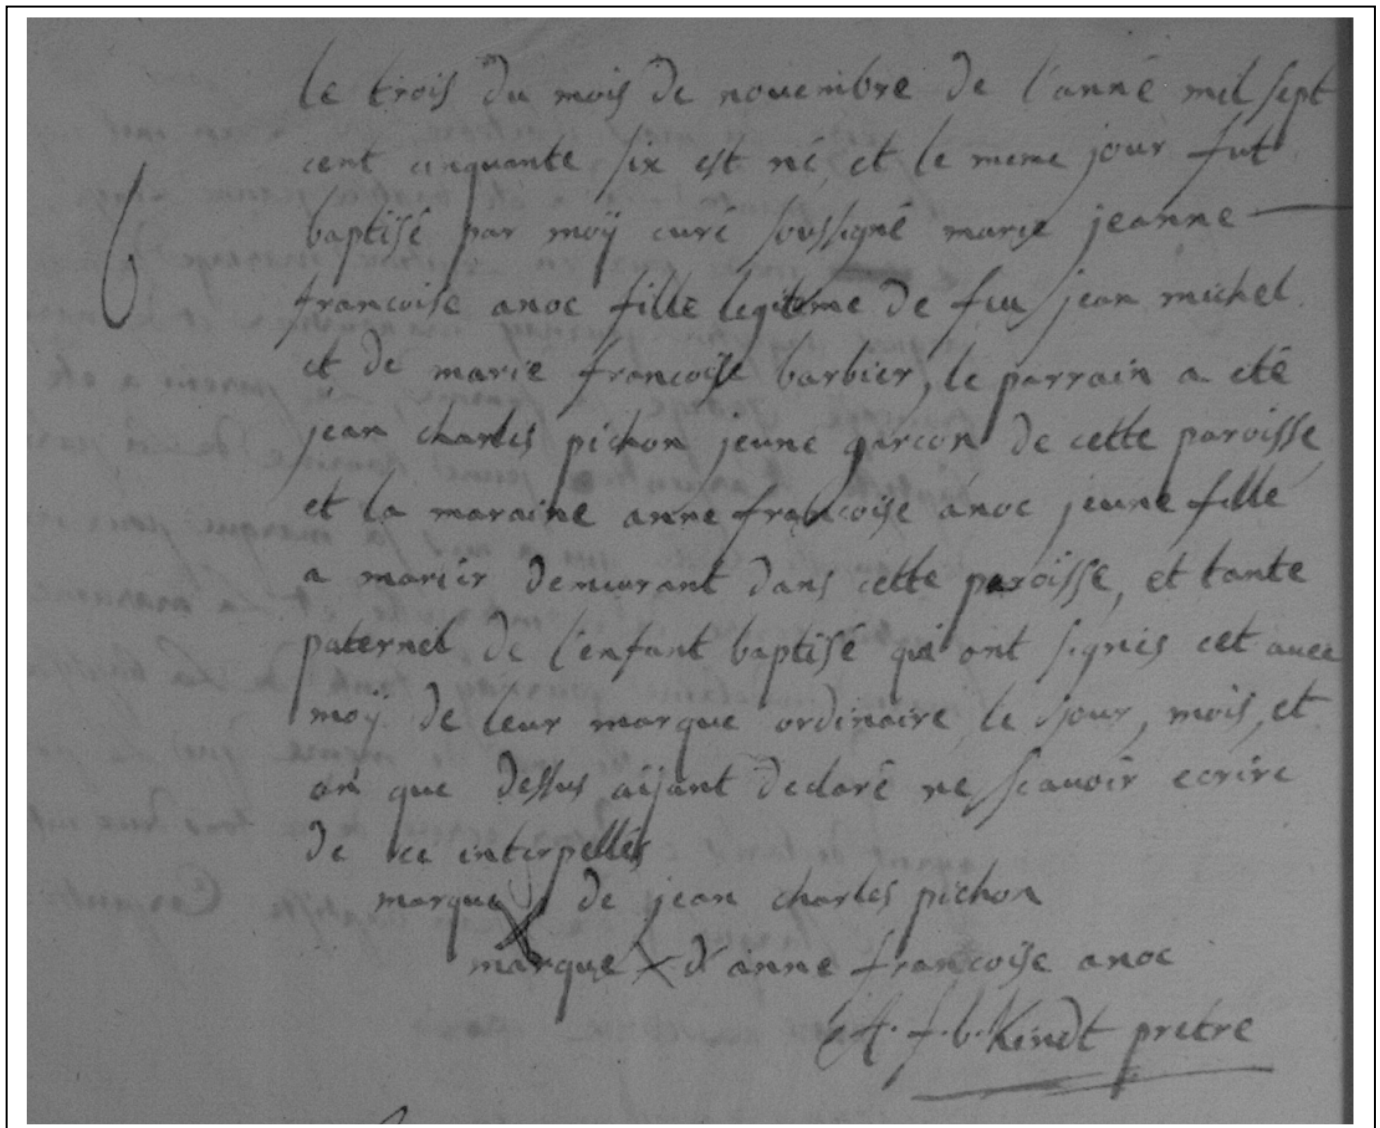 le trois du mois de novembre de l'anné mil sept
cent cinquante six est né, et le meme jour fut
6 baptisé par moÿ curé soussigné marie jeanne
francoise anoc fille legiteme de feu jean michel
et de marie francoise barbier, le parrain a eté
jean charles pichon jeune garcon de cette paroisse
et la maraine anne francoise anoc jeune fille
a marier demeurant dans cette paroisse, et tante
paternel de l'enfant baptisé qui ont signés cet avec
moÿ de leur marque ordinaire le jour, mois, et
an que dessus aÿant declaré ne scavoir ecrire
de ce interpellés
marque X de jean charles pichon
marque X d'anne françoise anoc
A. f. b. Kindt pretre